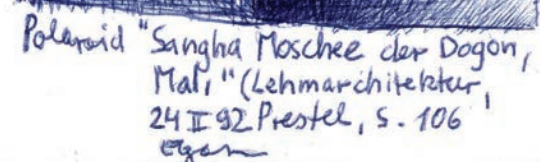 Polaroid "Sangha Moschee der Dogon,
Mali" (Lehmarchitektur,
24 II 92 Prestel, S. 106